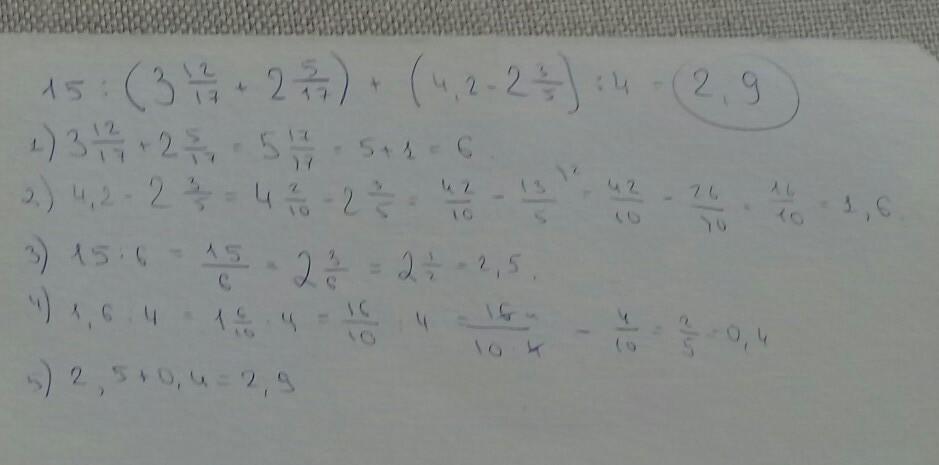 15 : (3 12/17 + 2 5/17) + (4,2 - 2 3/5) : 4 = 2,9
1) 3 12/17 + 2 5/17 = 5 17/17 = 5 + 1 = 6
2) 4,2 - 2 3/5 = 4 2/10 - 2 3/5 = 42/10 - 13/5 = 42/10 - 26/10 = 16/10 = 1,6
3) 15 : 6 = 15/6 = 2 3/6 = 2 1/2 = 2,5
4) 1,6 : 4 = 1 6/10 : 4 = 16/10 : 4 = 16/10·4 = 4/10 = 2/5 = 0,4
5) 2,5 + 0,4 = 2,9